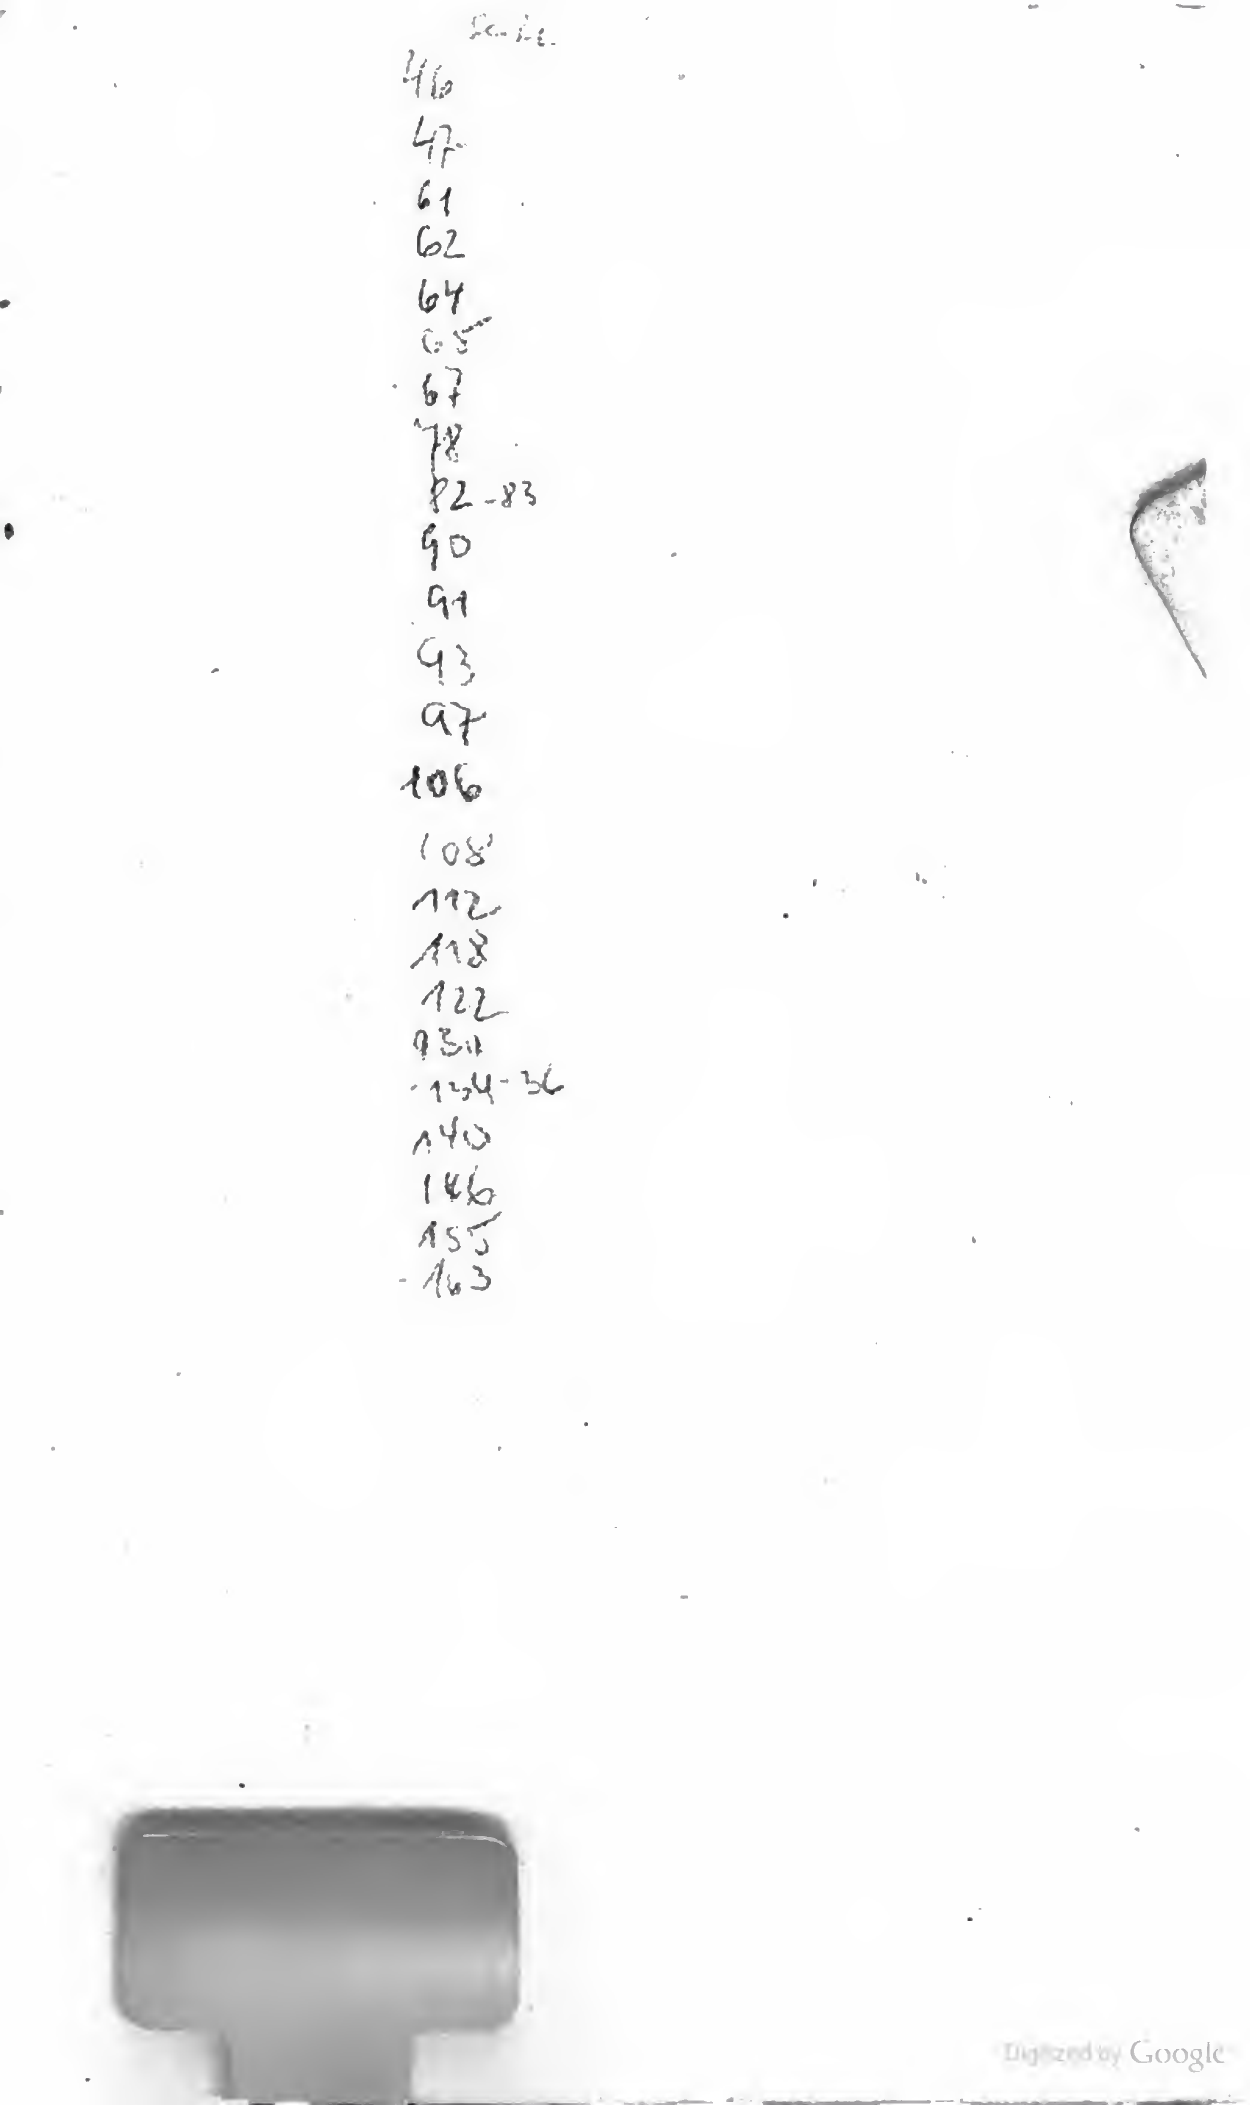 46
47
61
62
64
65
67
78
82-83
90
91
93
97
106
108
112
118
122
131
134-36
140
146
155
163
Digitized by Google